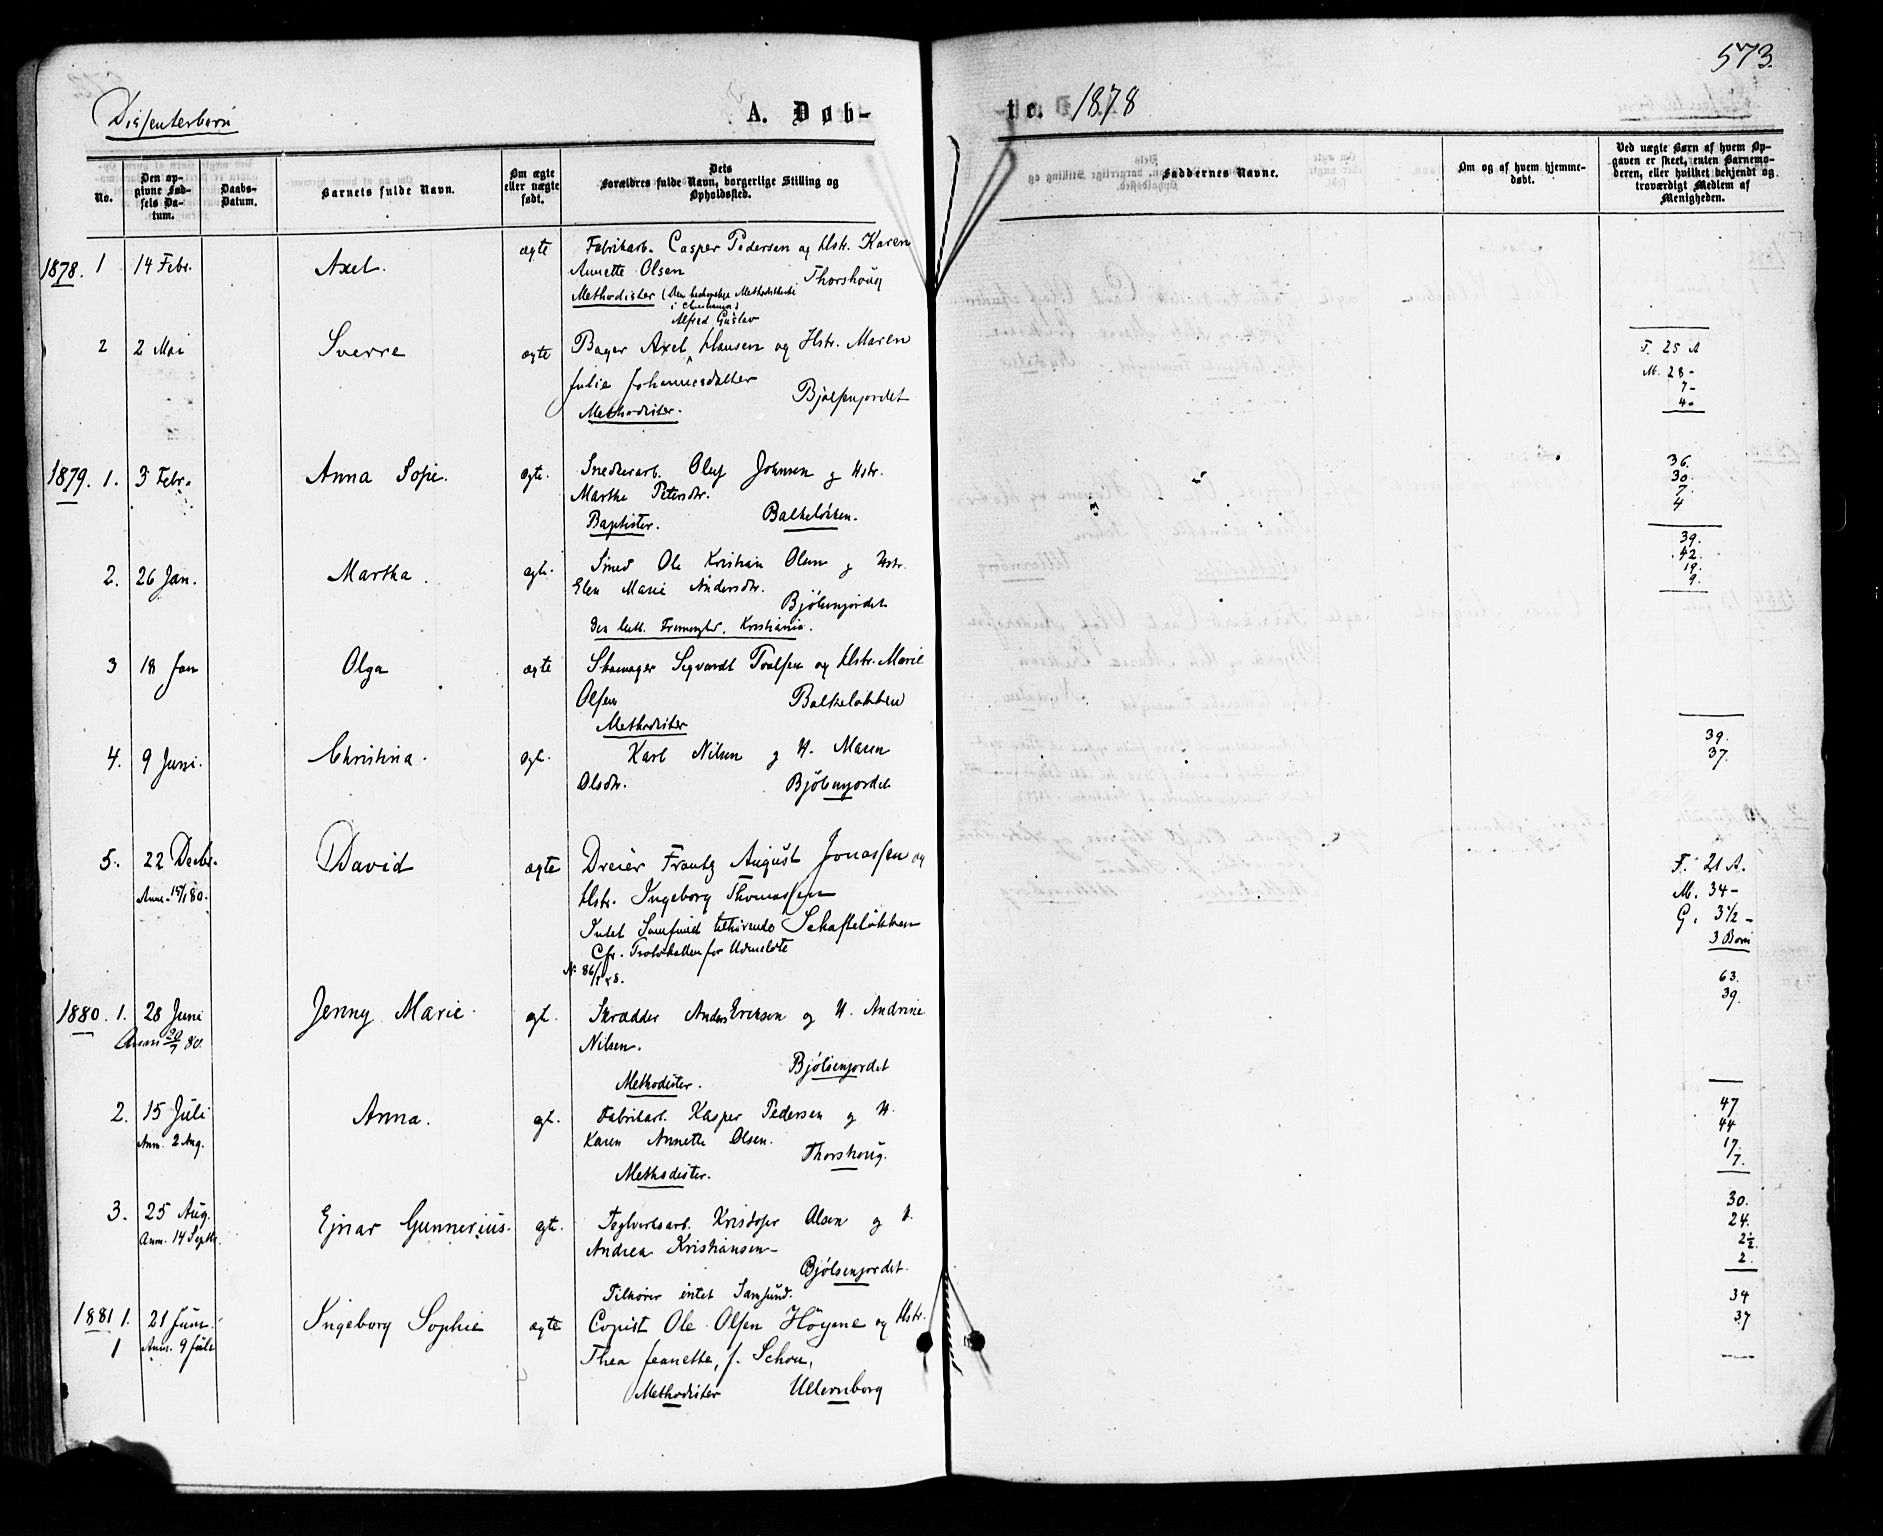 573.
Dissenterbørn
A. Døb-
te. 1878
No.
Den op-
givne Fød-
sels Da-
tum.
Daabs-
Datum.
Barnets fulde Navn.
Om ægte
eller uægte
født.
Dets
Forældres fulde Navn, borgerlige Stilling og
Opholdssted.
Faddernes Navne.
Om og af hvem hjemme-
døbt.
Ved uægte Børn af hvem Op-
gaven er skeet, enten Barnemo-
deren, eller hvilket bekjendt og
troværdigt Medlem af
Menigheden.
1878. 1 14 Febr. Axel. ægte Fabrikarb. Casper Pedersen og Hstr. Karen
Annette Olsen Thorshoug
Methodister (Den biskopelige Methodistkirke
i Christiania)
Alfred Gustav
2 2 Mai Sverre ægte Bager Axel ^ Hansen og Hstr. Maren
Julie Johannesdatter
Bjølsenjordet
Methodister.
F. 25 A
M. 28 -
7 -
4 -
1879. 1. 3 Febr. Anna Sofie. ægte. Snedkerarb. Oluf Johnsen og Hstr.
Marthe Petersdtr.
Baptister. Balkeløkken.
36.
30.
7.
4
2. 26 Jan. Martha. ægt. Smed Ole Kristian Olsen og Hstr.
Elen Marie Andersdtr.
Bjølsenjordet
Den luth. Frimenighd. Kristiania.
39.
42.
19.
9.
3 18 Jan Olga ægte Skomager Sigvardt Toalfsen og Hstr. Marie
Olsen Balkeløkken
Methodister
4. 9 Juni. Christina. ægt. Karl Nilsen og H. Maren
Olsdtr. Bjølsenjordet
39.
37.
5. 22 Decbr. David ægte Dreier Frantz August Jonassen og
Anm. 15/1 80. Hstr. Ingeborg Thomassen
Intet Samfund tilhørende Schafteløkken
Cfr. Protokollen for Udmeldte
No 86/
F. 21 A.
M. 34 -
G. 3 1/2 -
3 Børn
1880. 1. 28 Juni Jenny Marie. ægt. Skrædder Anders Eriksen og H. Andrine
Anm 30/7 80. Nilsen.
Bjølsenjordet
Methodister.
63.
39.
2. 15 Juli Anna. ægt. Fabrikarb. Kasper Pedersen og H.
Anm. 2 Aug. Karen Annette Olsen.
Thorshoug.
Methodister.
47
44
17.
7.
3. 25 Aug. Ejnar Gunnerius. ægt. Teglverksarb. Kristofer Olsen og H.
Anm. 14 Septbr. Andrea Kristiansen -
Bjølsenjordet.
Tilhører intet Samfund.
30.
24.
2 1/2.
2.
1881 1. 21 Juni. Ingeborg Sophie ægte Copist Ole Olsen Höyene og Hstr.
1 Anm. 9 Juli Thea Jeanette, f. Schou,
Methodister Ullernborg
34
37